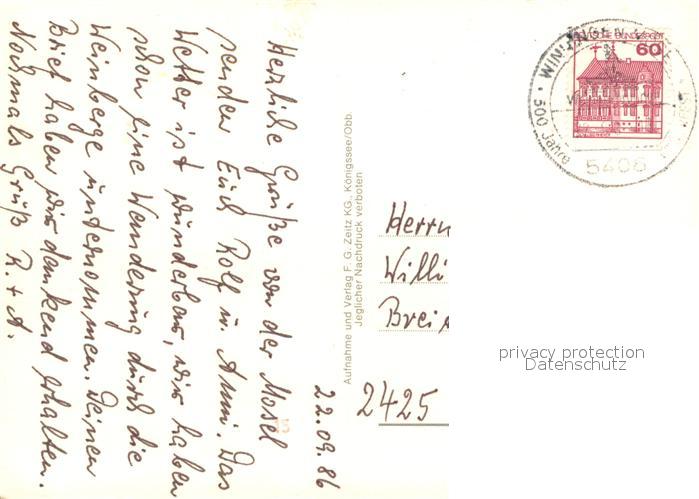 Herzliche Grüße von der Mosel
senden Euch Rolf u. Anni. Das
Wetter ist wunderbar, wir haben
schon eine Wanderung durch die
Weinberge unternommen. Deinen
Brief haben wir dankend erhalten.
Nochmals Gruß R. + A.
22.09.86
Aufnahme und Verlag F. G. Zeitz KG., Königssee/Obb.
Jeglicher Nachdruck verboten
DEUTSCHE BUNDESPOST
60
WINNINGEN
500 Jahre
5406
Herrn
Willi
Brei
2425
privacy protection
Datenschutz